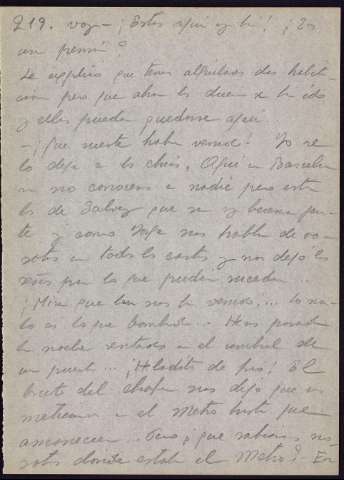 219. voz - ¡Estás aquí
un permiso?
Le explico que tenía alquiladas dos habita-
ción pero que ahora la dueña se ha ido
y ellos pueden quedarse aquí.
- ¡Qué suerte haber venido! Yo se
lo dije a los chicos. Aquí en Barcelona
no conocemos a nadie pero está
la de Galvez que es muy buena gen-
te y como Pepe nos habla de vo-
sotros en todas las cartas y nos dejó las
señas por lo que pueda suceder...
¡Mira que tan nos ha venido... lo ma-
lo es lo que bombardean... Hemos pasado
la noche entera en el umbral de
un puerta... ¡Heladitos de frío! El
bruto del chofer nos dejó que
metieramos en el Metro hasta que
amaneciera... Pero ¿que sabíamos no-
sotros donde estaba el Metro? - En